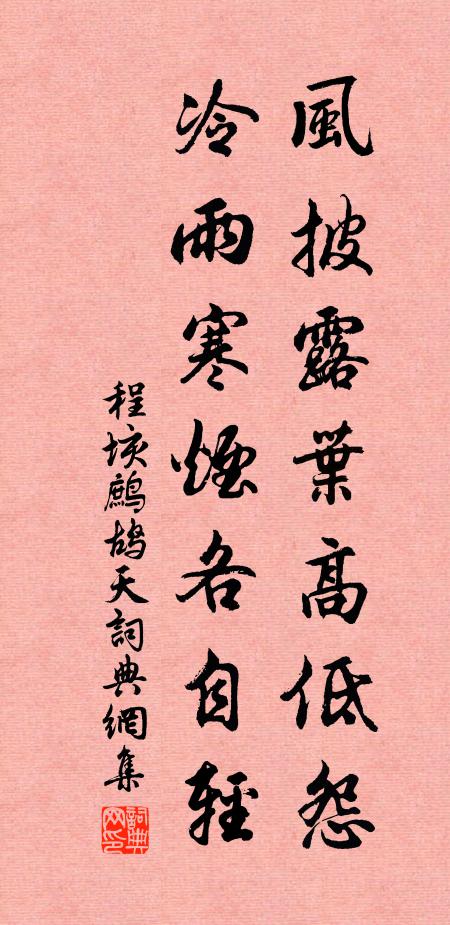 風披露葉高低怨
冷雨寒煙各自輕
程垓鷓鴣天詞典網集
詞典网印